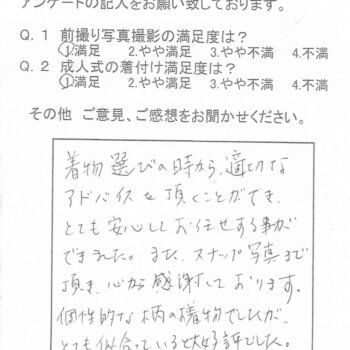 アンケートの記入をお願い致しております。
Q.1 前撮り写真撮影の満足度は？
①満足 2.やや満足 3.やや不満 4.不満
Q.2 成人式の着付け満足度は？
①満足 2.やや満足 3.やや不満 4.不満
その他 ご意見、ご感想をお聞かせください。
着物選びの時から、適切な
アドバイスを頂くことができ、
とても安心してお任せする事が
できました。また、スナップ写真まで
頂き、心から感謝しております。
個性的な柄の着物でしたが、
とても似合っていると大好評でした。